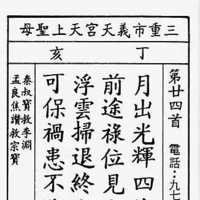 三重市義天宮天上聖母
丁亥
第廿四首
電話:九七
月出光輝四
前途祿位見
浮雲掃退終
可保禍患不
秦叔寶救李淵
孟良焦讚救宗寶